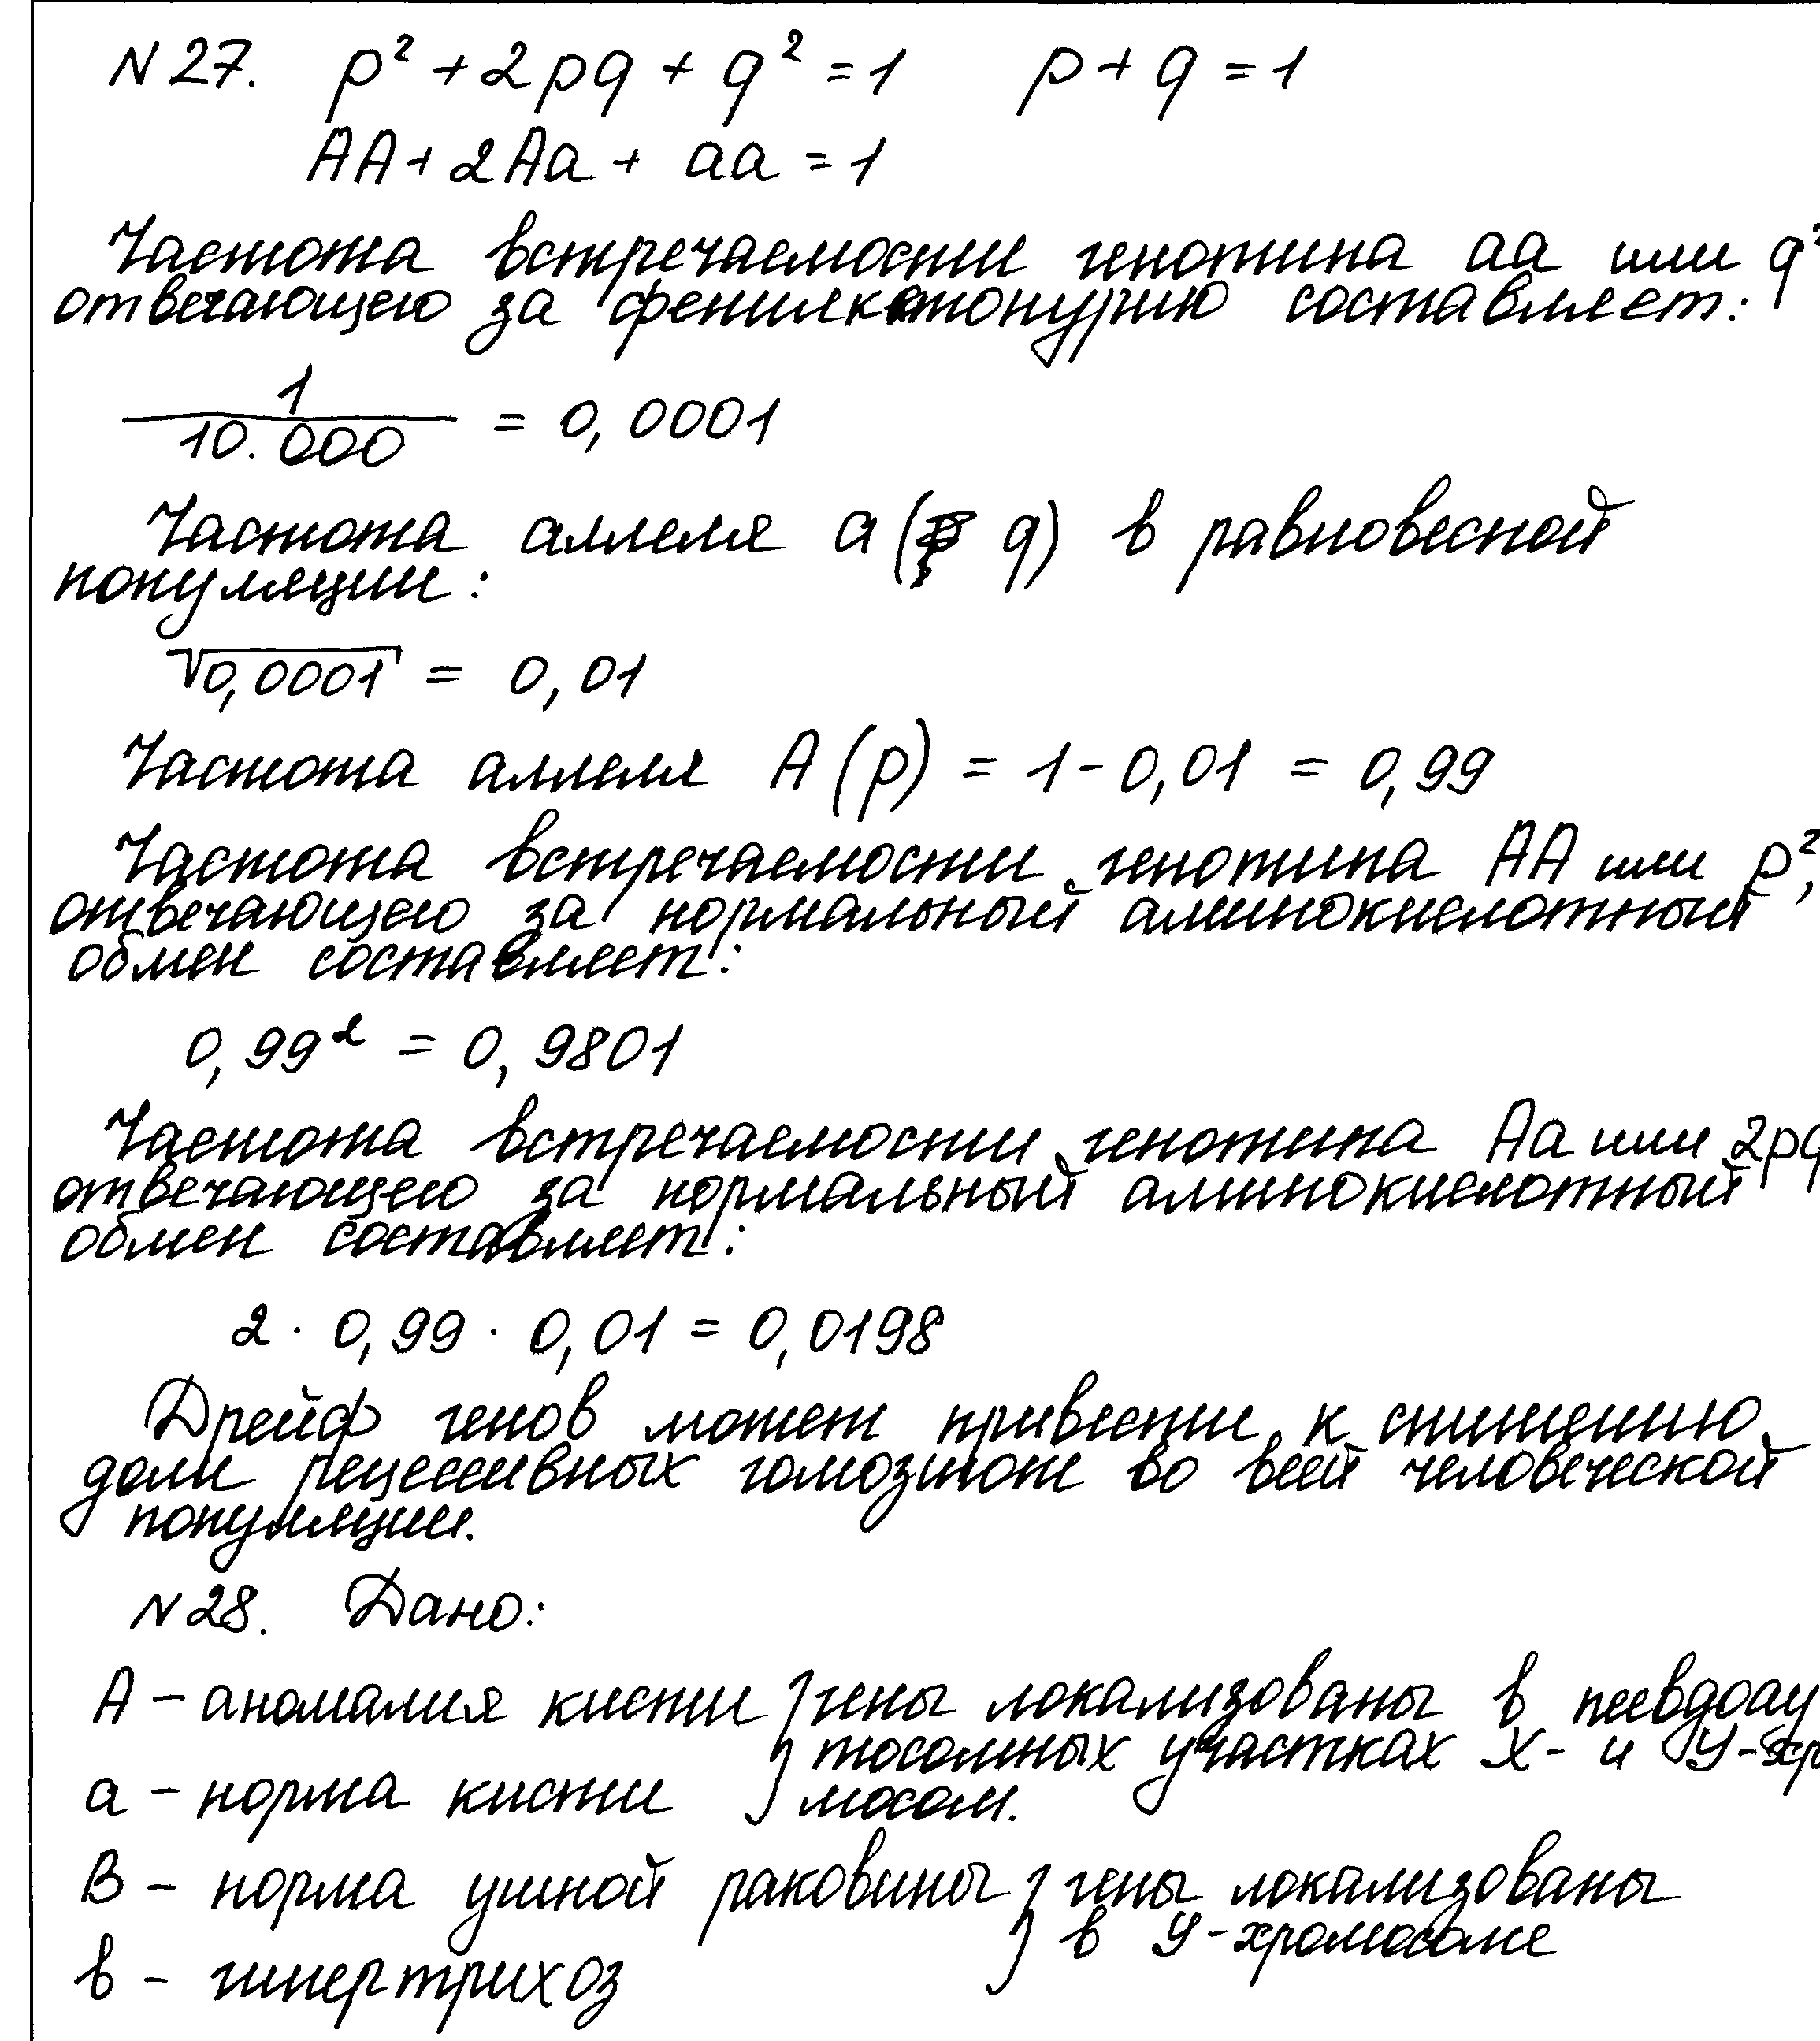 N 27. p² + 2pq + q² = 1 p + q = 1
AA + 2Aa + aa = 1
Частота встречаемости генотипа aa или q²
отвечающего за фенилкетонурию составляет:
1
10.000 = 0,0001
Частота аллеля a (q) в равновесной
популяции:
√0,0001 = 0,01
Частота аллеля A (p) = 1 - 0,01 = 0,99
Частота встречаемости генотипа AA или p²,
отвечающего за нормальный аминокислотный
обмен составляет:
0,99² = 0,9801
Частота встречаемости генотипа Aa или 2pq
отвечающего за нормальный аминокислотный
обмен составляет:
2 · 0,99 · 0,01 = 0,0198
Дрейф генов может привести к снищению
доли рецессивных гомозигот во всей человеческой
популяции.
N 28. Дано:
A – аномалия кисти } гены локализованы в псевдоау
тосомных участках X- и Y-хро
a – норма кисти мосом.
B – норма ушной раковины } гены локализованы
в Y-хромосоме
b – гипертрихоз